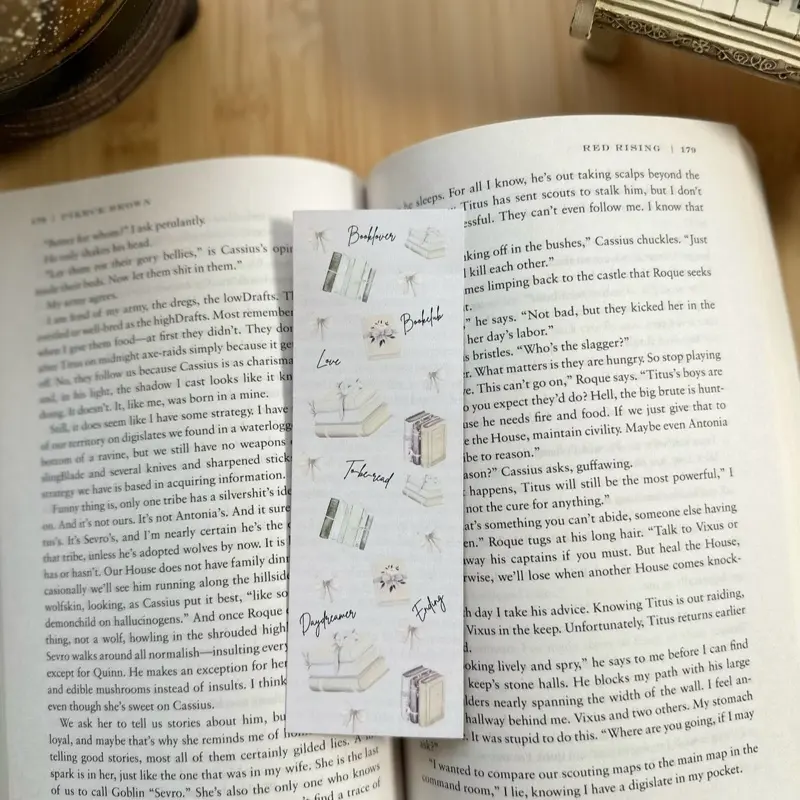 178 | PIERCE BROWN
"Better for whom?" I ask petulantly.
He only shakes his head.
"Let them use their gory bellies," is Cassius's
made their beds. Now let them shit in them."
My army agrees.
I am fond of my army, the dregs, the lowDrafts.
well-bred as the highDrafts. Most
when I give them food—at first they didn't. They
after Titus on midnight axe-raids simply because it
off. No, they follow us because Cassius is as
and, in his light, the shadow I cast looks like it
thing. It doesn't. It, like me, was born in a mine.
Still, it does seem like I have some strategy. I have
of our territory on digislates we found in a
bottom of a ravine, but we still have no weapons
slingBlade and several knives and sharpened
strategy we have is based in acquiring information.
Funny thing, only one tribe has a silvershit's
on. And it's not ours. It's not Antonia's. And it
tus's. It's Sevro's, and I'm nearly certain he's the
that tribe, unless he's adopted wolves by now. It is
has or hasn't. Our House does not have family
casionally we'll see him running along the
wolfskin, looking, as Cassius put it best, "like
demonchild on hallucinogens." And once Roque
thing, not a wolf, howling in the shrouded
Sevro walks around all normalish—insulting
except for Quinn. He makes an exception for her
and edible mushrooms instead of insults. I think
even though she's sweet on Cassius.
We ask her to tell us stories about him,
loyal, and maybe that's why she reminds me of
telling good stories, most all of them certainly gilded lies. A
spark is in her, just like the one that was in my wife. She is the last
of us to call Goblin "Sevro." She's also the only one who knows
find a trace of
Booklover
Bookclub
Love
To-be-read
Daydreamer
Ending
RED RISING | 179
he sleeps. For all I know, he's out taking scalps beyond the
Titus has sent scouts to stalk him, but I don't
They can't even follow me. I know that
off in the bushes," Cassius chuckles. "Just
kill each other."
limping back to the castle that Roque seeks
he says. "Not bad, but they kicked her in the
her day's labor."
bristles. "Who's the slagger?"
What matters is they are hungry. So stop playing
This can't go on," Roque says. "Titus's boys are
you expect they'd do? Hell, the big brute is hunt-
he needs fire and food. If we just give that to
the House, maintain civility. Maybe even Antonia
to reason."
Cassius asks, guffawing.
happens, Titus will still be the most powerful," I
not the cure for anything."
something you can't abide, someone else having
Roque tugs at his long hair. "Talk to Vixus or
his captains if you must. But heal the House,
we'll lose when another House comes knock-
day I take his advice. Knowing Titus is out raiding,
Vixus in the keep. Unfortunately, Titus returns earlier
lively and spry," he says to me before I can find
keep's stone halls. He blocks my path with his large
nearly spanning the width of the wall. I feel an-
hallway behind me. Vixus and two others. My stomach
It was stupid to do this. "Where are you going, if I may
"I wanted to compare our scouting maps to the main map in the
command room," I lie, knowing I have a digislate in my pocket.